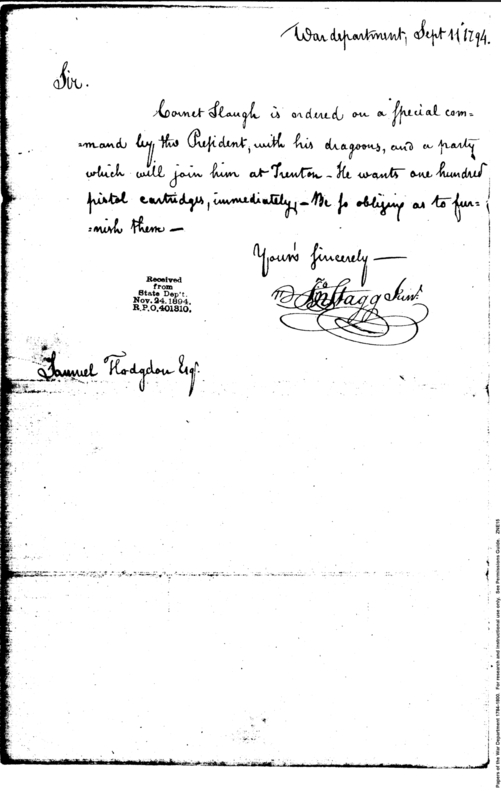 War department, Sept 11th 1794.
Sir.
Cornet Slaugh is ordered on a special com=
=mand by the President, with his dragoons, and a party
which will join him at Trenton - He wants one hundred
pistol cartridges, immediately, - Be so obliging as to fur=
=nish them —
Yours sincerely —
Jno Stagg Junr.
Received
from
State Dep't.
Nov. 24. 1894.
R.P.O. 401310.
Samuel Hodgdon Esqr.
Papers of the War Department 1784-1800. For research and instructional use only. See Permissions Guide. ZNE15